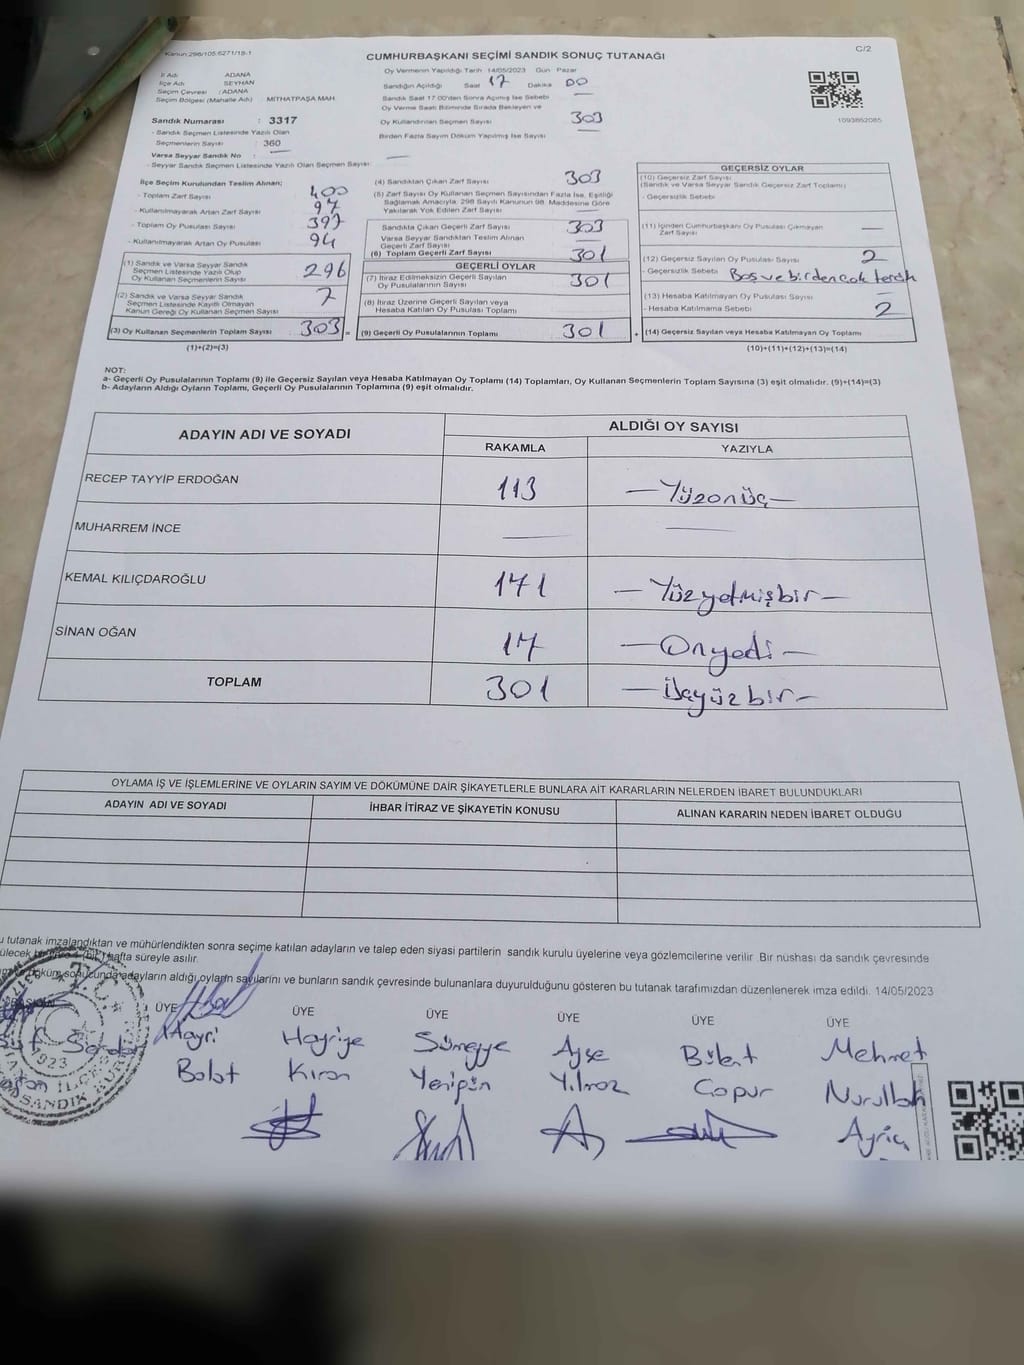 Kanun:298/105.6271/18-1
C/2
CUMHURBAŞKANI SEÇİMİ SANDIK SONUÇ TUTANAĞI
İl Adı : ADANA
İlçe Adı : SEYHAN
Seçim Çevresi : ADANA
Seçim Bölgesi (Mahalle Adı) : MİTHATPAŞA MAH.
Sandık Numarası : 3317
- Sandık Seçmen Listesinde Yazılı Olan
Seçmenlerin Sayısı : 360
Varsa Seyyar Sandık No : —
- Seyyar Sandık Seçmen Listesinde Yazılı Olan Seçmen Sayısı : —
Oy Vermenin Yapıldığı Tarih 14/05/2023 Gün Pazar
Sandığın Açıldığı Saat 17 Dakika 00
Sandık Saat 17.00'den Sonra Açılmış İse Sebebi —
Oy Verme Saati Bitiminde Sırada Bekleyen ve
Oy Kullandırılan Seçmen Sayısı 303
Birden Fazla Sayım Döküm Yapılmış İse Sayısı —
1093862085
İlçe Seçim Kurulundan Teslim Alınan;
- Toplam Zarf Sayısı 400
- Kullanılmayarak Artan Zarf Sayısı 97
- Toplam Oy Pusulası Sayısı 397
- Kullanılmayarak Artan Oy Pusulası 94
(1) Sandık ve Varsa Seyyar Sandık
Seçmen Listesinde Yazılı Olup
Oy Kullanan Seçmenlerin Sayısı 296
(2) Sandık ve Varsa Seyyar Sandık
Seçmen Listesinde Kayıtlı Olmayan
Kanun Gereği Oy Kullanan Seçmen Sayısı 7
(3) Oy Kullanan Seçmenlerin Toplam Sayısı 303 =
(1)+(2)=(3)
(4) Sandıktan Çıkan Zarf Sayısı 303
(5) Zarf Sayısı Oy Kullanan Seçmen Sayısından Fazla İse, Eşitliği
Sağlamak Amacıyla, 298 Sayılı Kanunun 98. Maddesine Göre
Yakılarak Yok Edilen Zarf Sayısı —
Sandıkta Çıkan Geçerli Zarf Sayısı 303
Varsa Seyyar Sandıktan Teslim Alınan
Geçerli Zarf Sayısı —
(6) Toplam Geçerli Zarf Sayısı 301
GEÇERLİ OYLAR
(7) İtiraz Edilmeksizin Geçerli Sayılan
Oy Pusulalarının Sayısı 301
(8) İtiraz Üzerine Geçerli Sayılan veya
Hesaba Katılan Oy Pusulası Toplamı
(9) Geçerli Oy Pusulalarının Toplamı 301 +
GEÇERSİZ OYLAR
(10) Geçersiz Zarf Sayısı
(Sandık ve Varsa Seyyar Sandık Geçersiz Zarf Toplamı)
- Geçersizlik Sebebi
(11) İçinden Cumhurbaşkanı Oy Pusulası Çıkmayan
Zarf Sayısı —
(12) Geçersiz Sayılan Oy Pusulası Sayısı 2
- Geçersizlik Sebebi Boş ve birden çok tercih
(13) Hesaba Katılmayan Oy Pusulası Sayısı —
- Hesaba Katılmama Sebebi 2
(14) Geçersiz Sayılan veya Hesaba Katılmayan Oy Toplamı
(10)+(11)+(12)+(13)=(14)
NOT:
a- Geçerli Oy Pusulalarının Toplamı (9) ile Geçersiz Sayılan veya Hesaba Katılmayan Oy Toplamı (14) Toplamları, Oy Kullanan Seçmenlerin Toplam Sayısına (3) eşit olmalıdır. (9)+(14)=(3)
b- Adayların Aldığı Oyların Toplamı, Geçerli Oy Pusulalarının Toplamına (9) eşit olmalıdır.
ADAYIN ADI VE SOYADI ALDIĞI OY SAYISI
RAKAMLA YAZIYLA
RECEP TAYYİP ERDOĞAN 113 — Yüzonüç —
MUHARREM İNCE — —
KEMAL KILIÇDAROĞLU 171 — Yüzyetmişbir —
SİNAN OĞAN 17 — Onyedi —
TOPLAM 301 — Üçyüzbir —
OYLAMA İŞ VE İŞLEMLERİNE VE OYLARIN SAYIM VE DÖKÜMÜNE DAİR ŞİKAYETLERLE BUNLARA AİT KARARLARIN NELERDEN İBARET BULUNDUKLARI
ADAYIN ADI VE SOYADI İHBAR İTİRAZ VE ŞİKAYETİN KONUSU ALINAN KARARIN NEDEN İBARET OLDUĞU
u tutanak imzalandıktan ve mühürlendikten sonra seçime katılan adayların ve talep eden siyasi partilerin sandık kurulu üyelerine veya gözlemcilerine verilir. Bir nüshası da sandık çevresinde
hafta süreyle asılır.
döküm sonucunda adayların aldığı oyların sayılarını ve bunların sandık çevresinde bulunanlara duyurulduğunu gösteren bu tutanak tarafımızdan düzenlenerek imza edildi. 14/05/2023
ÜYE ÜYE ÜYE ÜYE ÜYE ÜYE
Hayri Hayriye Sümeyye Ayşe Bülent Mehmet
Bolat Kıran Yenipın Yılmaz Copur Nurullah
Ayrıç
T.C.
1923
SANDIK KURULU